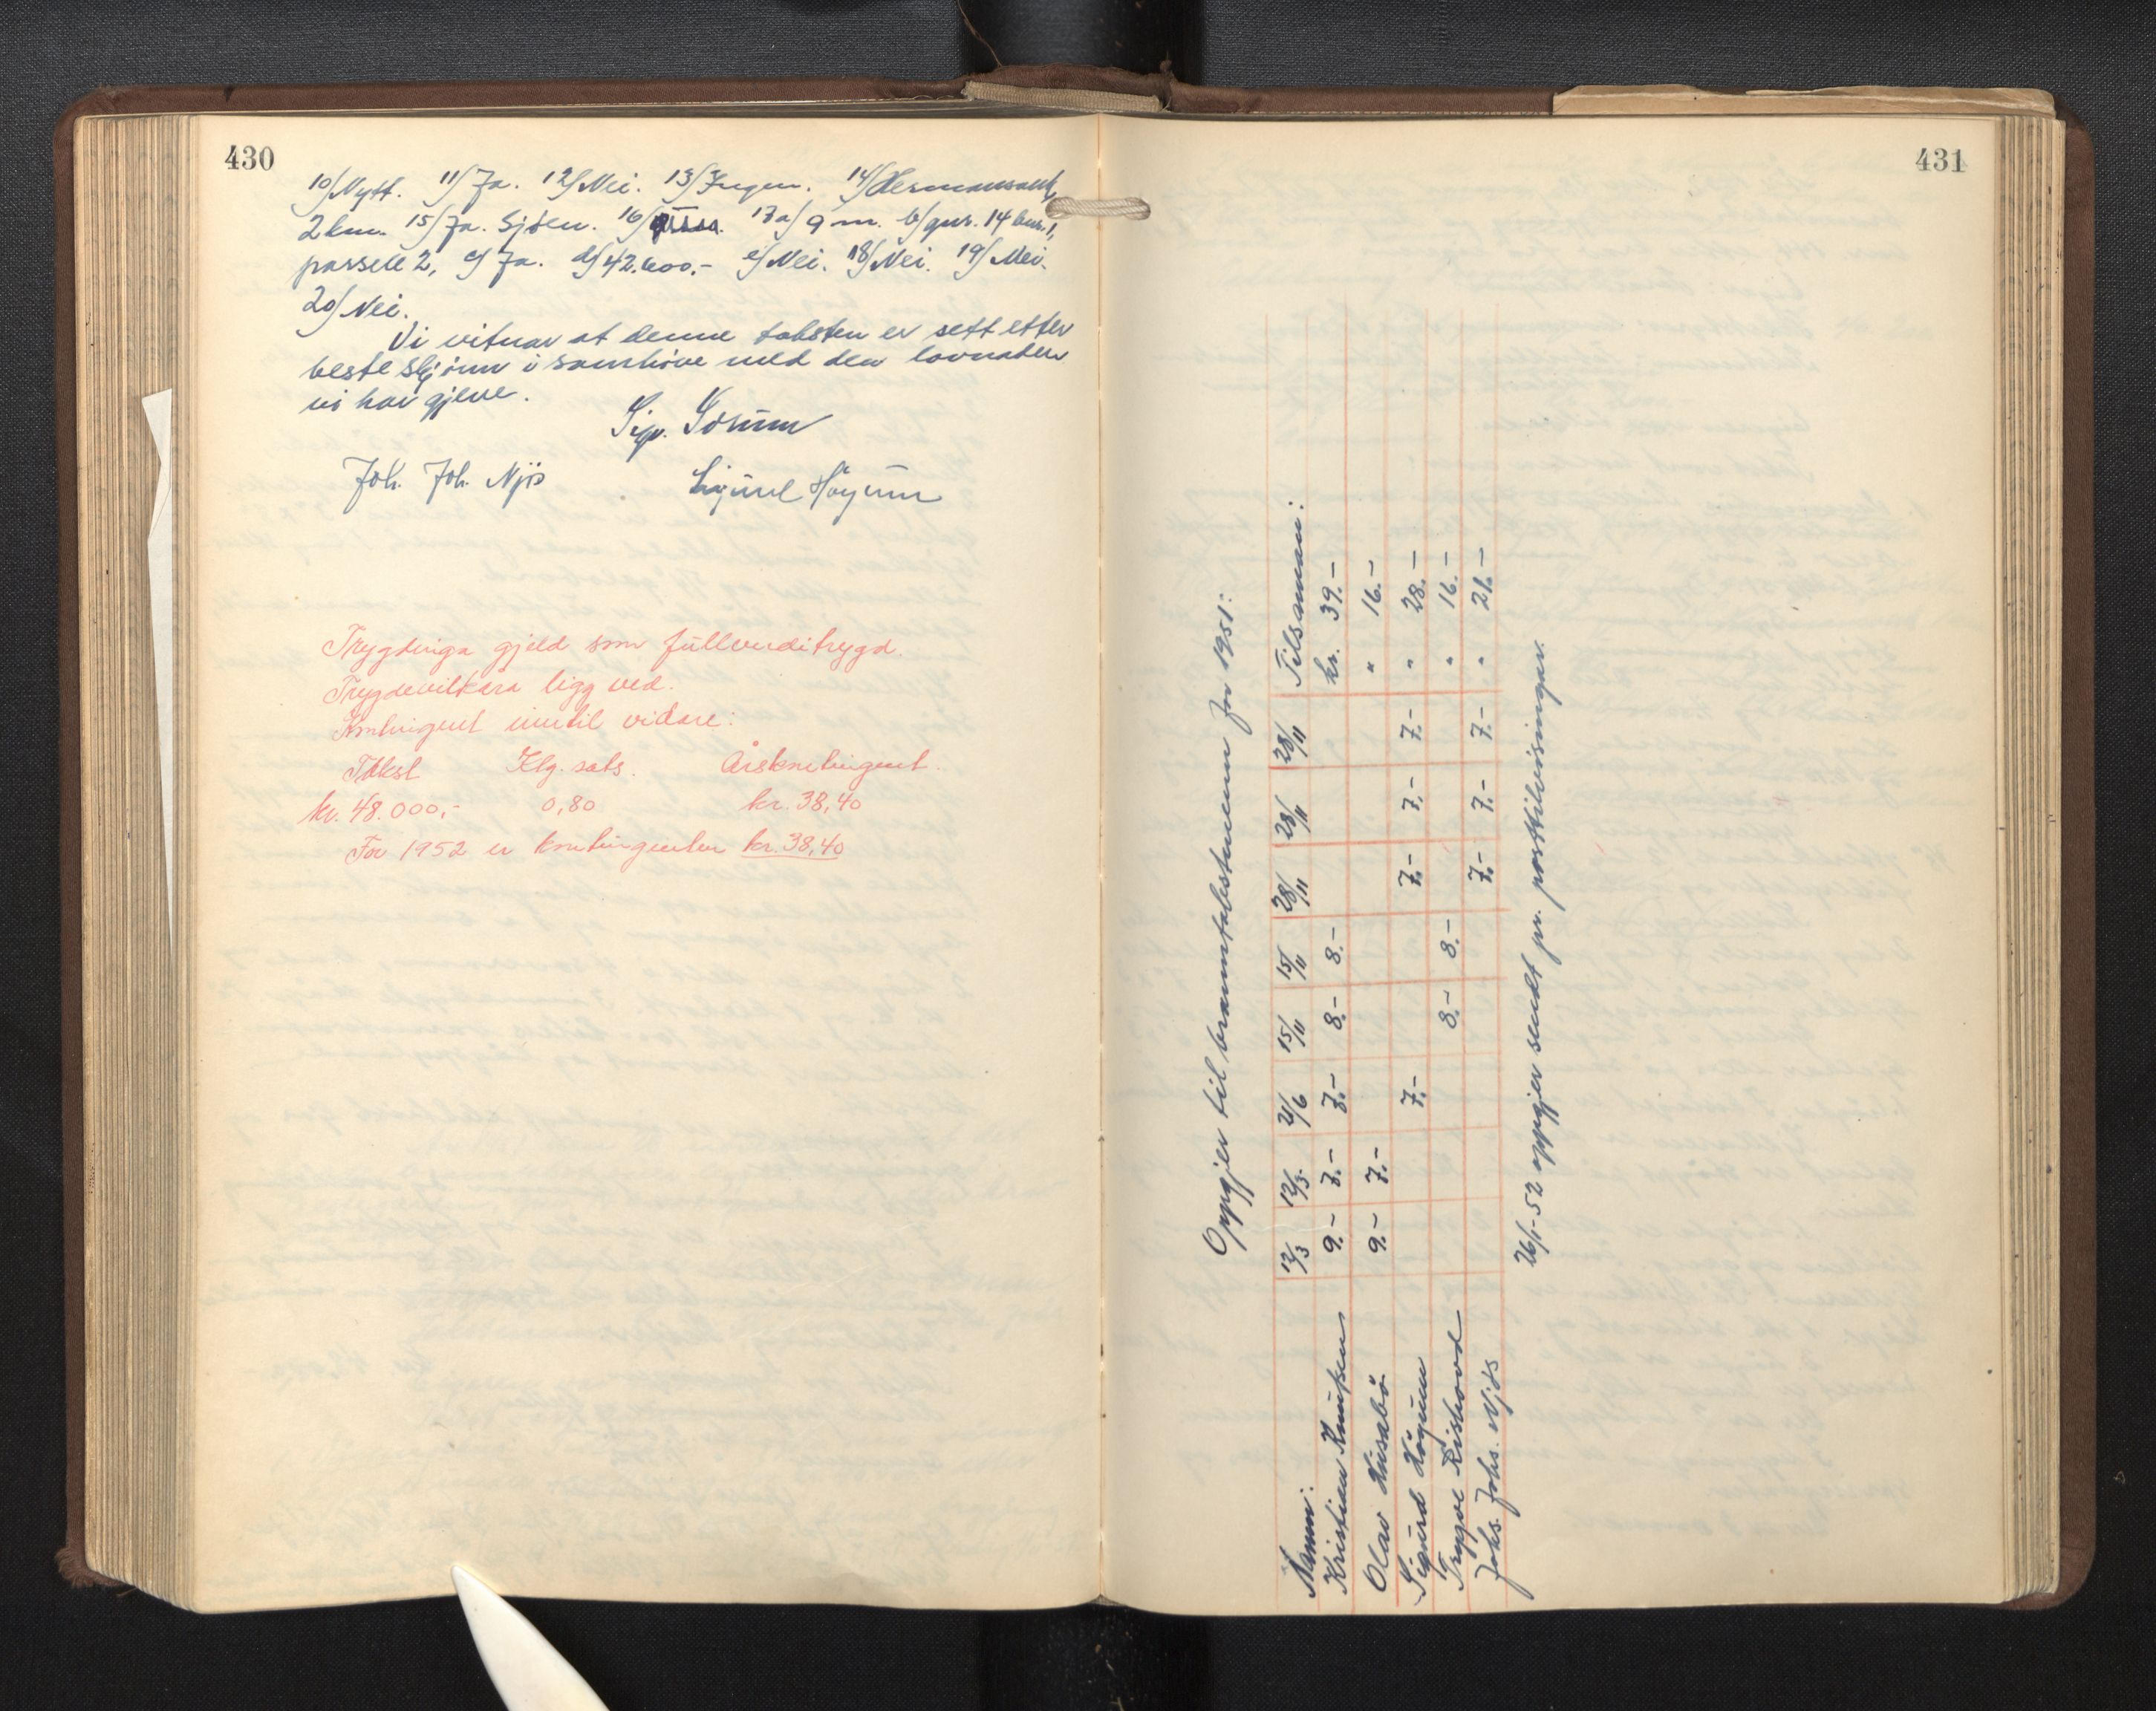 430
10/ Nytt. 11/ Ja. 12/ Nei. 13/ Ingen. 14/
2 km. 15/ Ja. Sjøen. 16/ 17a/ 9 m. b/ gnr. 14 bnr. 1,
parsell 2, c/ Ja. d/ 42.600.- e/ Nei. 18/ Nei. 19/ Nei.
20/ Nei.
Vi vitnar at denne taksten er sett etter
beste skjönn i samhöve med den lovnaden
vi har gjeve.
Sigv.
Joh. Joh. Njøs Sigurd Høyum
Trygdinga gjeld som fullverditrygd.
Trygdevilkåra ligg ved.
Kontingent inntil vidare:
Takst Klg. sats. Årskontingent.
kr. 48.000,- 0,80 kr. 38,40
For 1952 er kontingenten kr. 38,40
431
Oppgjer til branntakstmenn for 1951:
Namn: 12/3 12/3. 21/6 15/11 15/11 28/11 28/11 28/11 Tilsaman:
Kristian Knutsen 9.- 7.- 7.- 8.- 8.- kr. 39.-
Olav Husabö 9.- 7.- " 16.-
Sigurd Høyum 7.- 7.- 7.- 7.- " 28.-
Trygve 8.- 8.- " 16.-
Johs. Johs. Njøs 7.- 7.- 7.- " 21.-
26/1-52 oppgjer sendt pr. posttilvisningar.